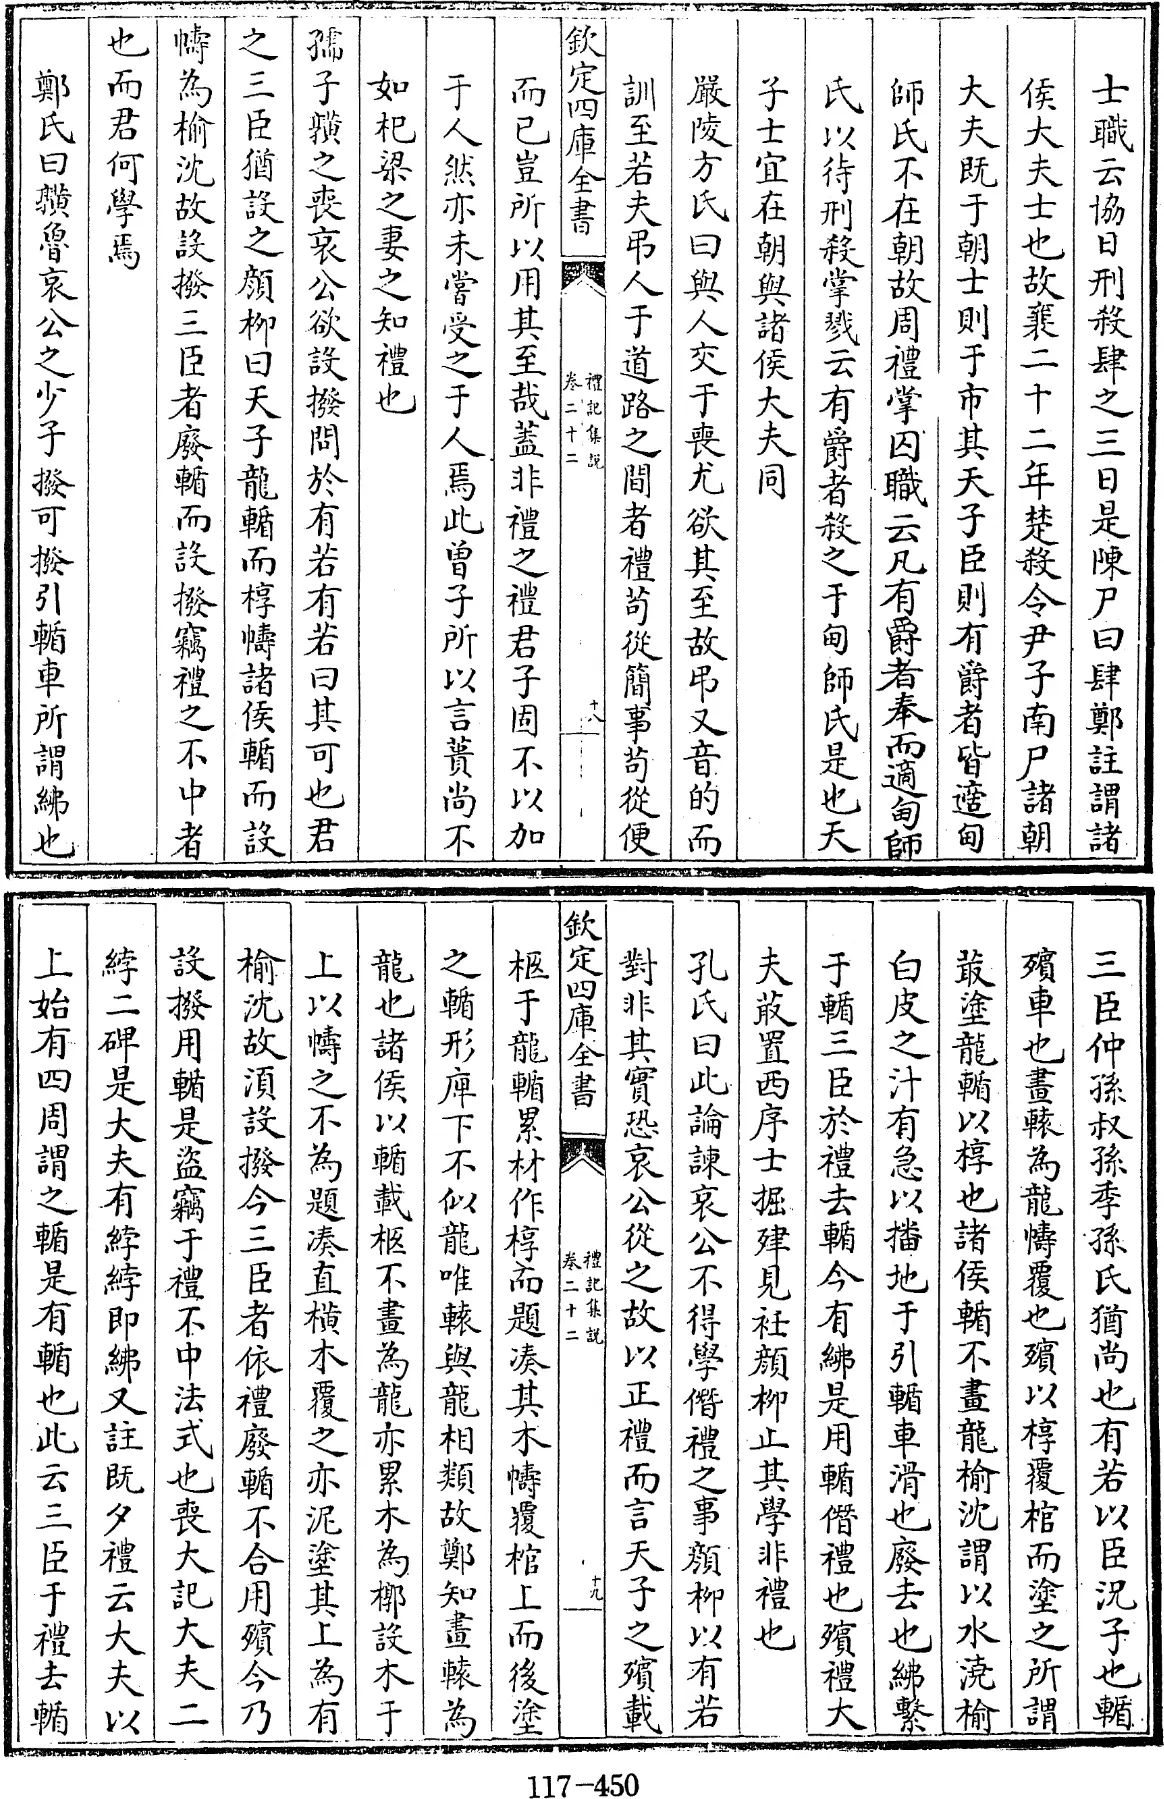 士職云協日刑殺肆之三日是陳尸曰肆鄭註謂諸
侯大夫士也故襄二十二年楚殺令尹子南尸諸朝
大夫既于朝士則于市其天子臣則有爵者皆適甸
師氏不在朝故周禮掌囚職云凡有爵者奉而適甸師
氏以待刑殺掌戮云有爵者殺之于甸師氏是也天
子士宜在朝與諸侯大夫同
嚴陵方氏曰與人交于喪尤欲其至故弔又音的而
訓至若夫弔人于道路之間者禮苟從簡事苟從便
欽定四庫全書
禮記集說
卷二十二
十八
而已豈所以用其至哉蓋非禮之禮君子固不以加
于人然亦未嘗受之于人焉此曾子所以言蕢尚不
如杞梁之妻之知禮也
孺子䵃之喪哀公欲設撥問於有若有若曰其可也君
之三臣猶設之顔柳曰天子龍輴而椁幬諸侯輴而設
幬為榆沈故設撥三臣者廢輴而設撥竊禮之不中者
也而君何學焉
鄭氏曰䵃魯哀公之少子撥可撥引輴車所謂紼也
三臣仲孫叔孫季孫氏猶尚也有若以臣況子也輴
殯車也畫轅為龍幬覆也殯以椁覆棺而塗之所謂
菆塗龍輴以椁也諸侯輴不畫龍榆沈謂以水澆榆
白皮之汁有急以播地于引輴車滑也廢去也紼繫
于輴三臣於禮去輴今有紼是用輴僭禮也殯禮大
夫菆置西序士掘肂見衽顔柳止其學非禮也
孔氏曰此論諫哀公不得學僭禮之事顔柳以有若
對非其實恐哀公從之故以正禮而言天子之殯載
欽定四庫全書
禮記集說
卷二十二
十九
柩于龍輴累材作椁而題湊其木幬覆棺上而後塗
之輴形庳下不似龍唯轅與龍相類故鄭知畫轅為
龍也諸侯以輴載柩不畫為龍亦累木為槨設木于
上以幬之不為題湊直橫木覆之亦泥塗其上為有
榆沈故須設撥今三臣者依禮廢輴不合用殯今乃
設撥用輴是盜竊于禮不中法式也喪大記大夫二
綍二碑是大夫有綍綍即紼又註既夕禮云大夫以
上始有四周謂之輴是有輴也此云三臣于禮去輴
117-450